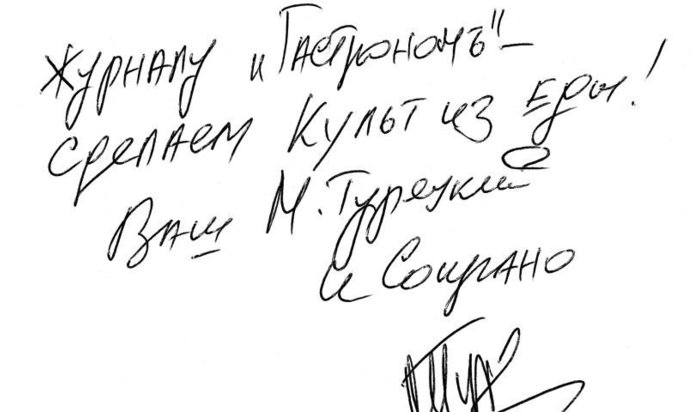 Журналу „Гастрономъ" –
сделаем культ из еды!
Ваш М. Турецкий
и Сопрано